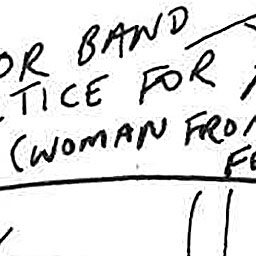 OR BAND
TICE FOR
(WOMAN FROM
FE